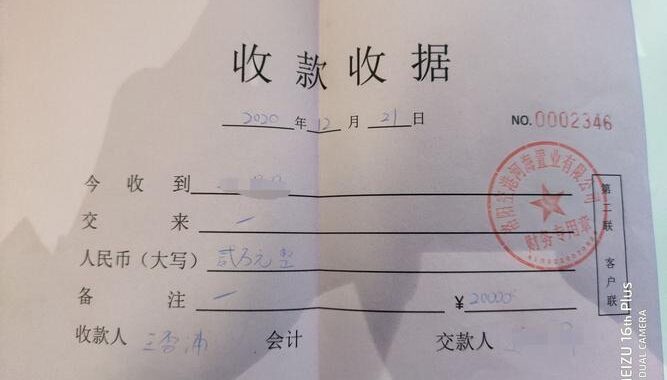 收款收据
2020年12月21日
NO.0002346
今收到
交来 一
人民币（大写）贰万元整
备注 一 ¥20000
收款人 会计 交款人
置业有限公司
财务专用章
第二联 客户联
MEIZU 16th Plus
DUAL CAMERA